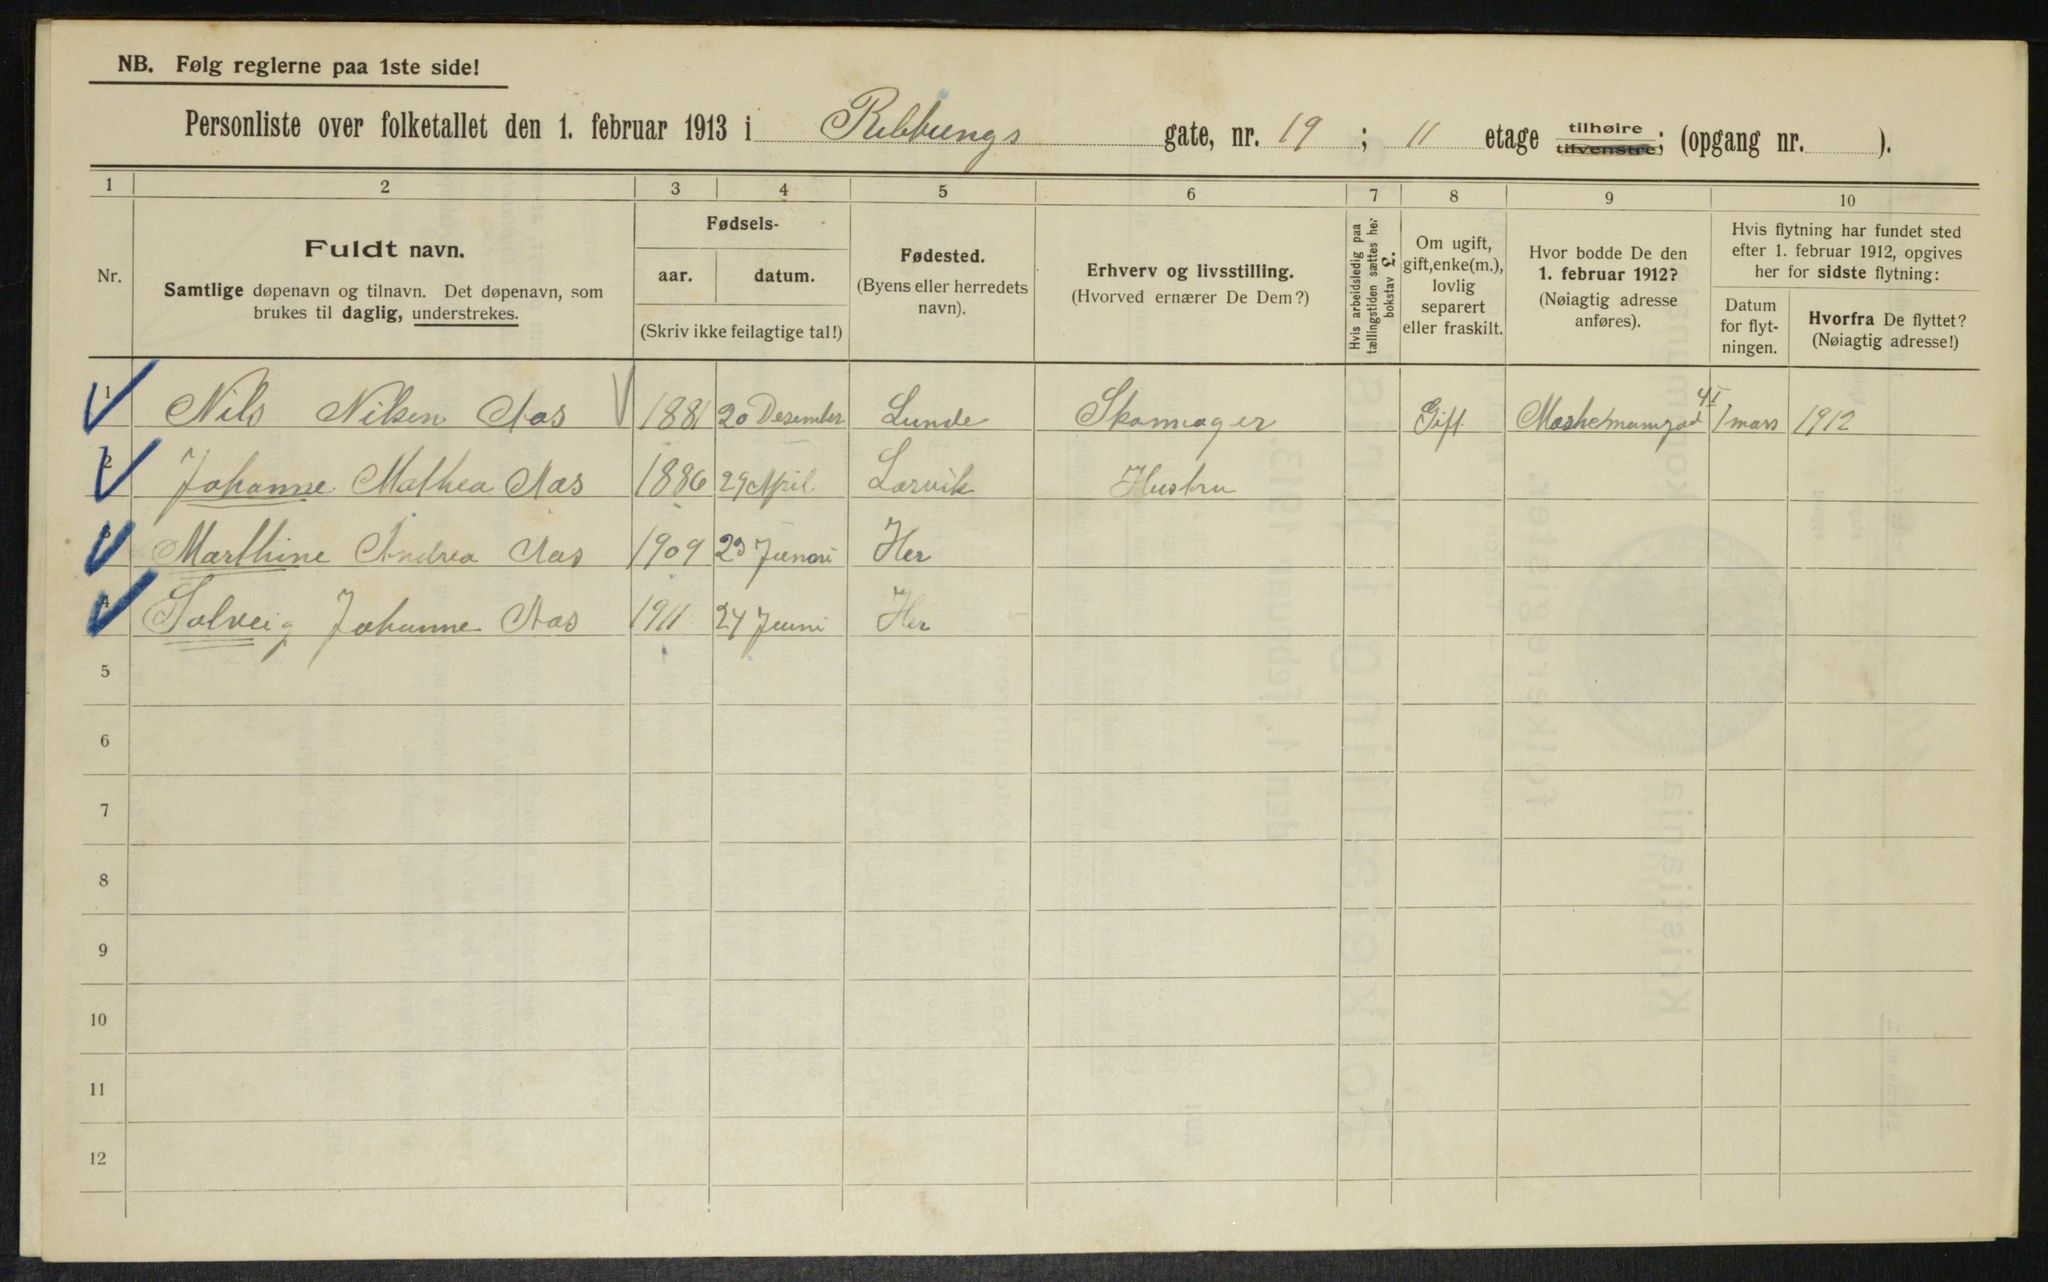 NB. Følg reglerne paa 1ste side!
Personliste over folketallet den 1. februar 1913 i Ribbungs gate, nr. 19 ; 11 etage tilhøire tilvenstre; (opgang nr. ).
1 2 3 4 5 6 7 8 9 10
Nr.
Fuldt navn.
Samtlige døpenavn og tilnavn. Det døpenavn, som
brukes til daglig, understrekes.
Fødsels-
aar. datum.
(Skriv ikke feilagtige tal!)
Fødested.
(Byens eller herredets
navn).
Erhverv og livsstilling.
(Hvorved ernærer De Dem?)
Hvis arbeidsledig paa
tællingstiden sættes her
bokstav L.
Om ugift,
gift, enke(m.),
lovlig
separert
eller fraskilt.
Hvor bodde De den
1. februar 1912?
(Nøiagtig adresse
anføres).
Hvis flytning har fundet sted
efter 1. februar 1912, opgives
her for sidste flytning:
Datum
for flyt-
ningen.
Hvorfra De flyttet?
(Nøiagtig adresse!)
1 Nils Nilsen Aas 1881 20 Desember Lunde Skomager Gift 1 mars 1912
2 Johanne Mathea Aas 1886 29 April Larvik Hustru
3 Marthine Andrea Aas 1909 23 Her
4 Solveig Johanne Aas 1911 24 Juni Her
5
6
7
8
9
10
11
12